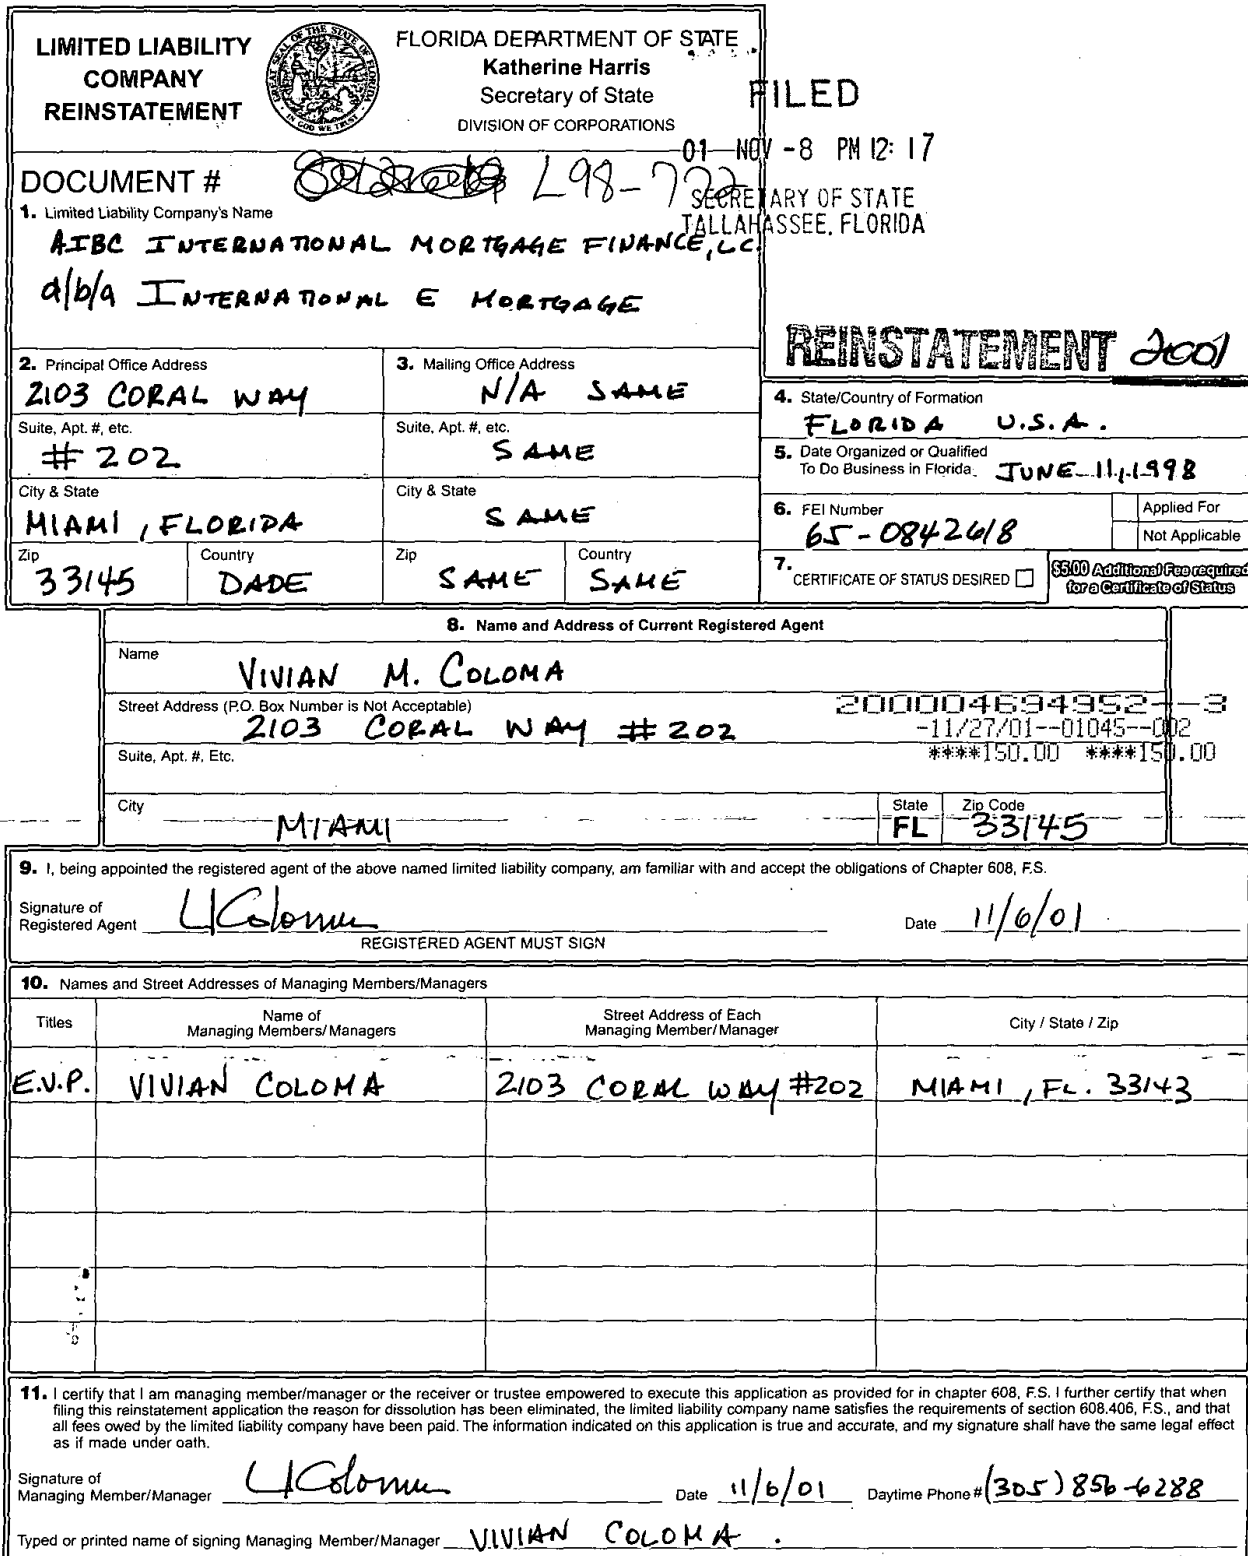 LIMITED LIABILITY
COMPANY
REINSTATEMENT
FLORIDA DEPARTMENT OF STATE
Katherine Harris
Secretary of State
DIVISION OF CORPORATIONS
GREAT SEAL OF THE STATE OF FLORIDA
IN GOD WE TRUST
FILED
01 NOV -8 PM 12: 17
SECRETARY OF STATE
TALLAHASSEE, FLORIDA
DOCUMENT # L98-722
1. Limited Liability Company's Name
AIBC INTERNATIONAL MORTGAGE FINANCE, LC.
d/b/a INTERNATIONAL E MORTGAGE
REINSTATEMENT 2001
2. Principal Office Address
2103 CORAL WAY
3. Mailing Office Address
N/A SAME
Suite, Apt. #, etc.
# 202
Suite, Apt. #, etc.
SAME
City & State
MIAMI, FLORIDA
City & State
SAME
Zip
33145
Country
DADE
Zip
SAME
Country
SAME
4. State/Country of Formation
FLORIDA U.S.A.
5. Date Organized or Qualified
To Do Business in Florida JUNE 11, 1998
6. FEI Number
65-0842618
Applied For
Not Applicable
7. CERTIFICATE OF STATUS DESIRED
$5.00 Additional Fee required
for a Certificate of Status
8. Name and Address of Current Registered Agent
Name
VIVIAN M. COLOMA
Street Address (P.O. Box Number is Not Acceptable)
2103 CORAL WAY # 202
200004694952--3
-11/27/01--01045--002
****150.00 ****150.00
Suite, Apt. #, Etc.
City
MIAMI
State
FL
Zip Code
33145
9. I, being appointed the registered agent of the above named limited liability company, am familiar with and accept the obligations of Chapter 608, F.S.
Signature of
Registered Agent VColoma
Date 11/6/01
REGISTERED AGENT MUST SIGN
10. Names and Street Addresses of Managing Members/Managers
Titles
Name of
Managing Members/Managers
Street Address of Each
Managing Member/Manager
City / State / Zip
E.V.P. VIVIAN COLOMA 2103 CORAL WAY #202 MIAMI, FL. 33143
11. I certify that I am managing member/manager or the receiver or trustee empowered to execute this application as provided for in chapter 608, F.S. I further certify that when
filing this reinstatement application the reason for dissolution has been eliminated, the limited liability company name satisfies the requirements of section 608.406, F.S., and that
all fees owed by the limited liability company have been paid. The information indicated on this application is true and accurate, and my signature shall have the same legal effect
as if made under oath.
Signature of
Managing Member/Manager VColoma Date 11/6/01 Daytime Phone # (305) 856-6288
Typed or printed name of signing Managing Member/Manager VIVIAN COLOMA.